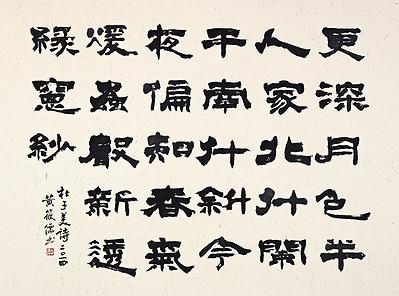 更深月色半
人家北斗闌
干南斗斜今
夜偏知春氣
煖蟲聲新透
綠窻紗
杜子美詩二〇一四
黃筱儒书